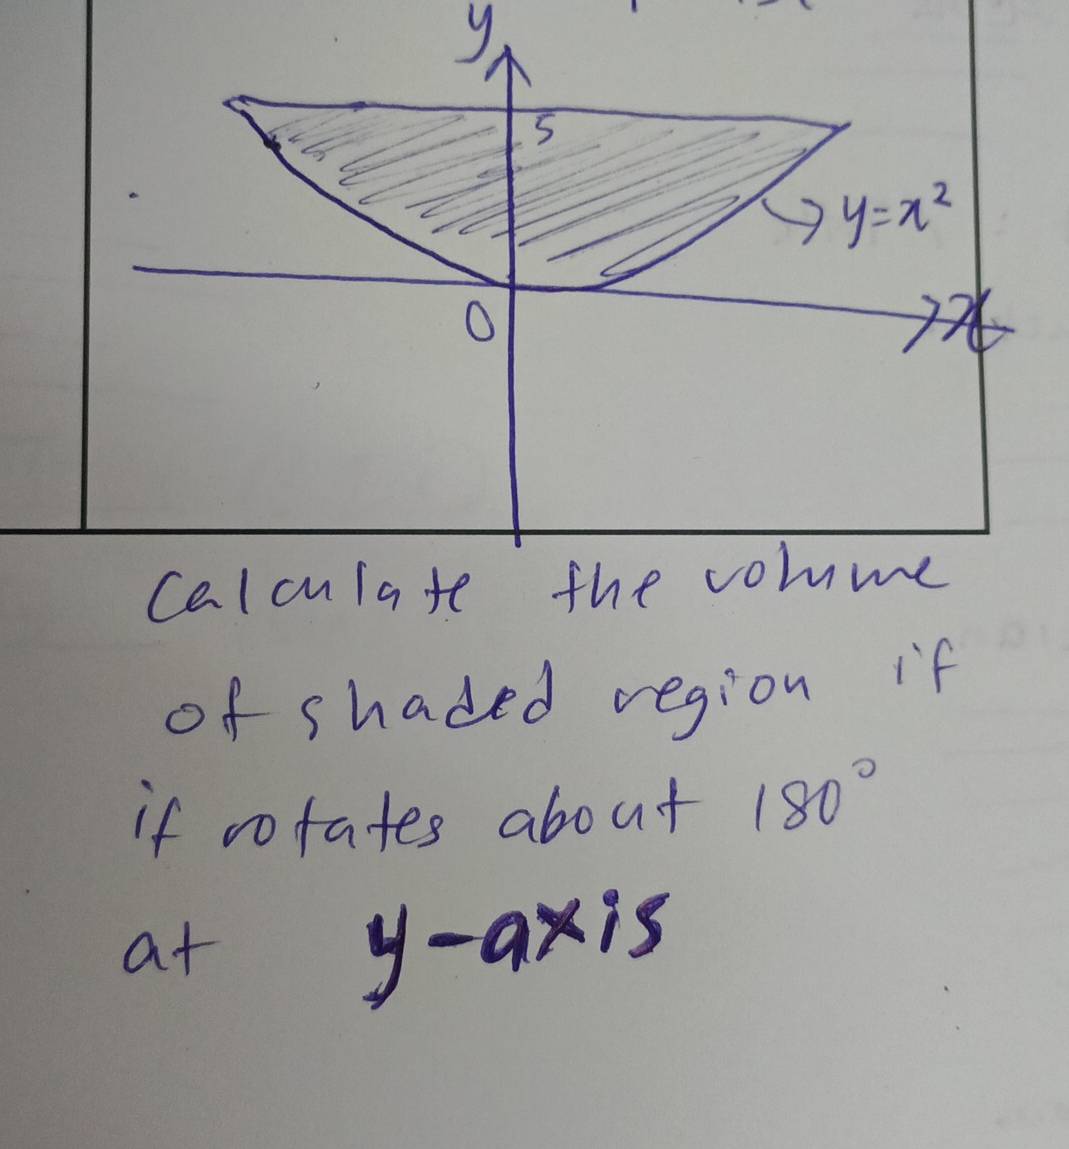 y
5
y=x²
0
x
Calculate the volume
of shaded region if
if rotates about 180°
at y-axis